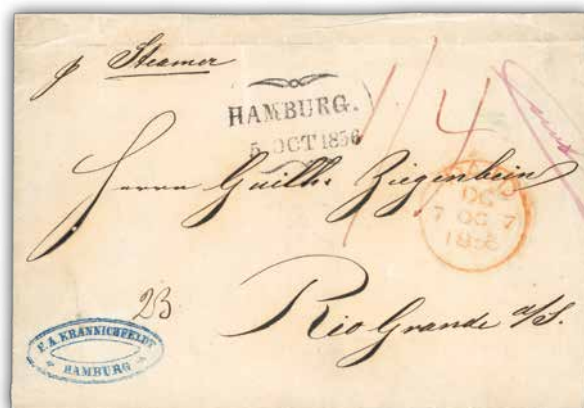 p Steamer
HAMBURG.
5 OCT 1856
1/4
Herrn Guilh. Ziegenbein
OC
7 OC 7
1856
23
Rio Grande a/S.
F. A. KRANNICHFELDT
HAMBURG